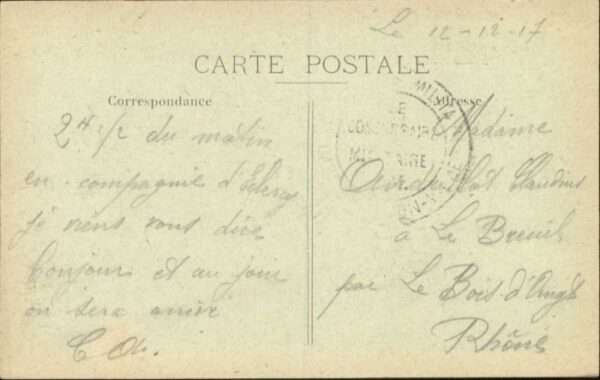 Le 12-12-17
CARTE POSTALE
Correspondance
Adresse
2 H 1/2 du matin
en compagnie d'
je viens vous dire
bonjour et au jour
on sera arrivé
C
LE
MILITAIRE
Madame
Claudius
à Le Breuil
par Le Bois d'Oingt
Rhône